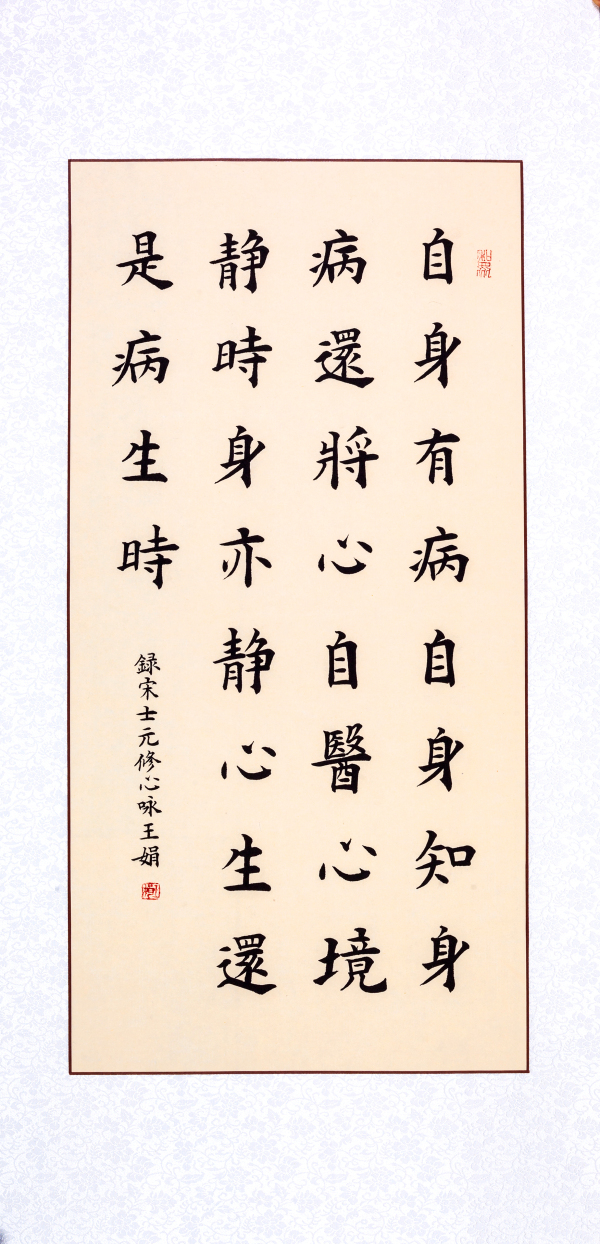 自身有病自身知身
病還將心自醫心境
静時身亦静心生還
是病生時
録宋士元修心咏王娟